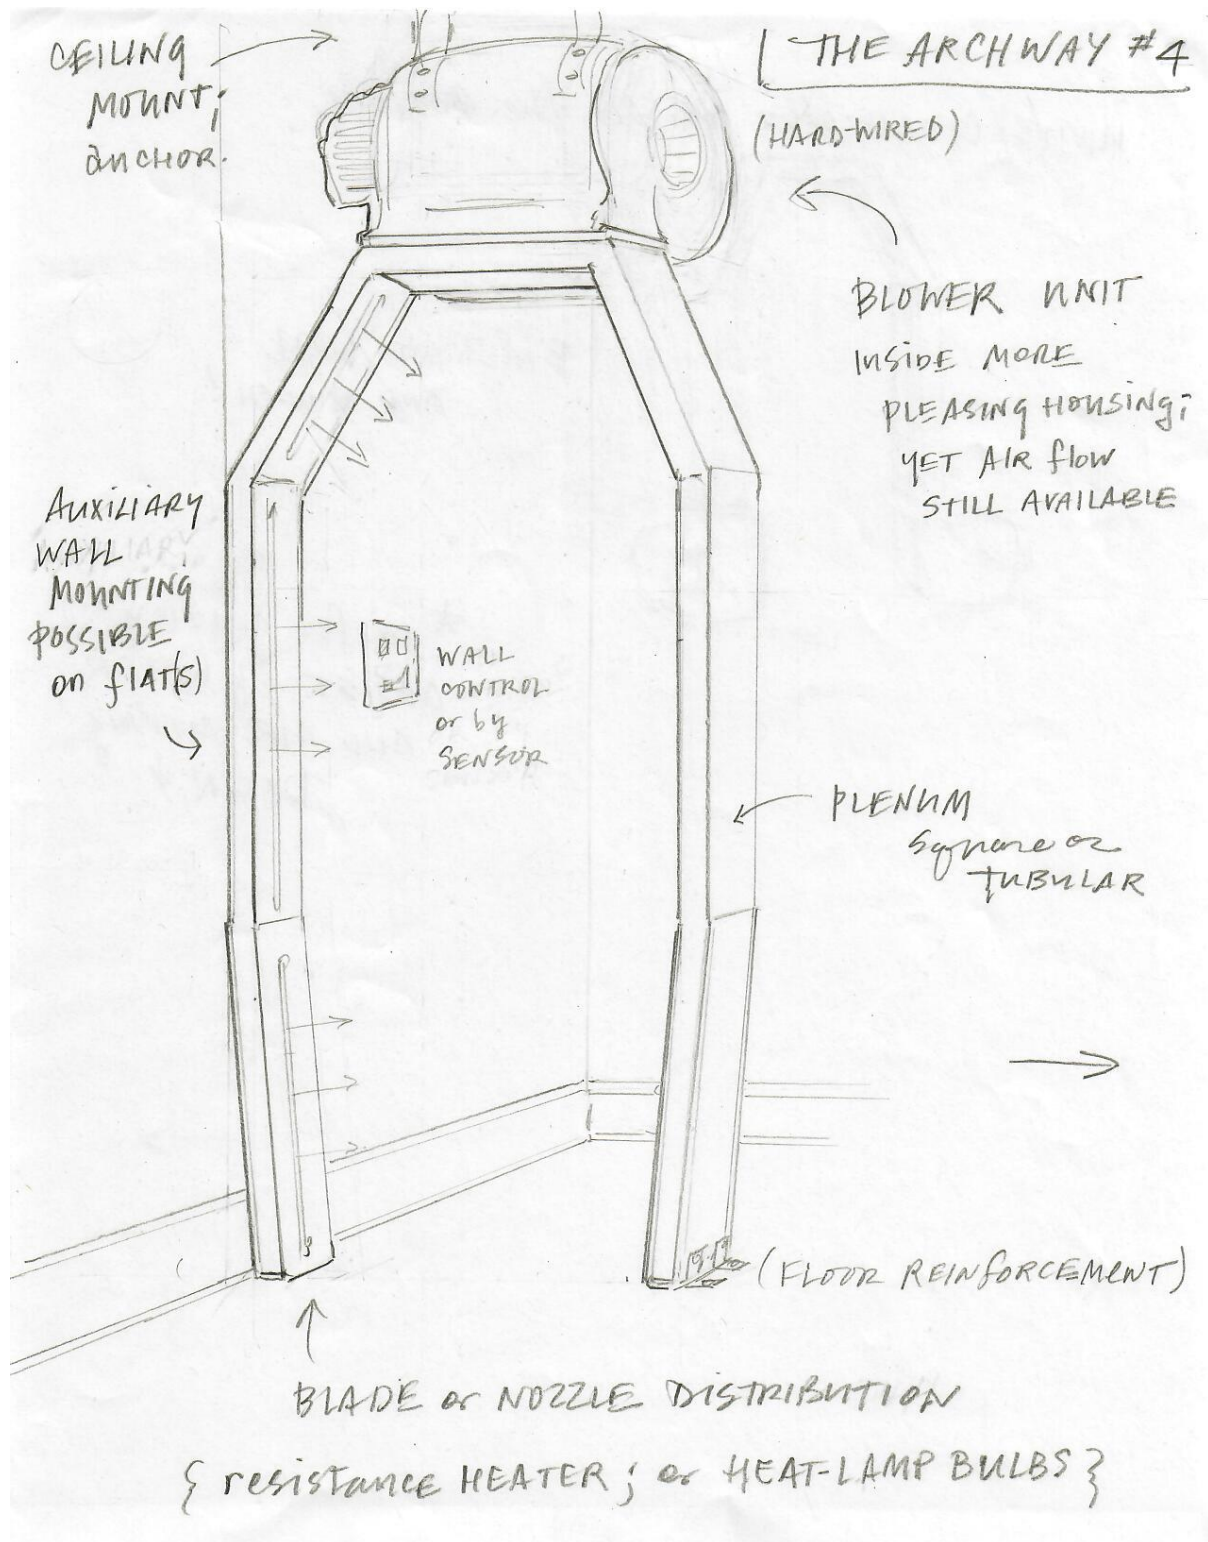 CEILING
MOUNT;
anchor.
THE ARCHWAY #4
(HARD-WIRED)
BLOWER UNIT
INSIDE MORE
PLEASING HOUSING;
YET AIR flow
STILL AVAILABLE
AUXILIARY
WALL
MOUNTING
POSSIBLE
on flAT(S)
WALL
CONTROL
or by
SENSOR
PLENUM
Square or
TUBULAR
(FLOOR REINFORCEMENT)
BLADE or NOZZLE DISTRIBUTION
{ resistance HEATER; or HEAT-LAMP BULBS }